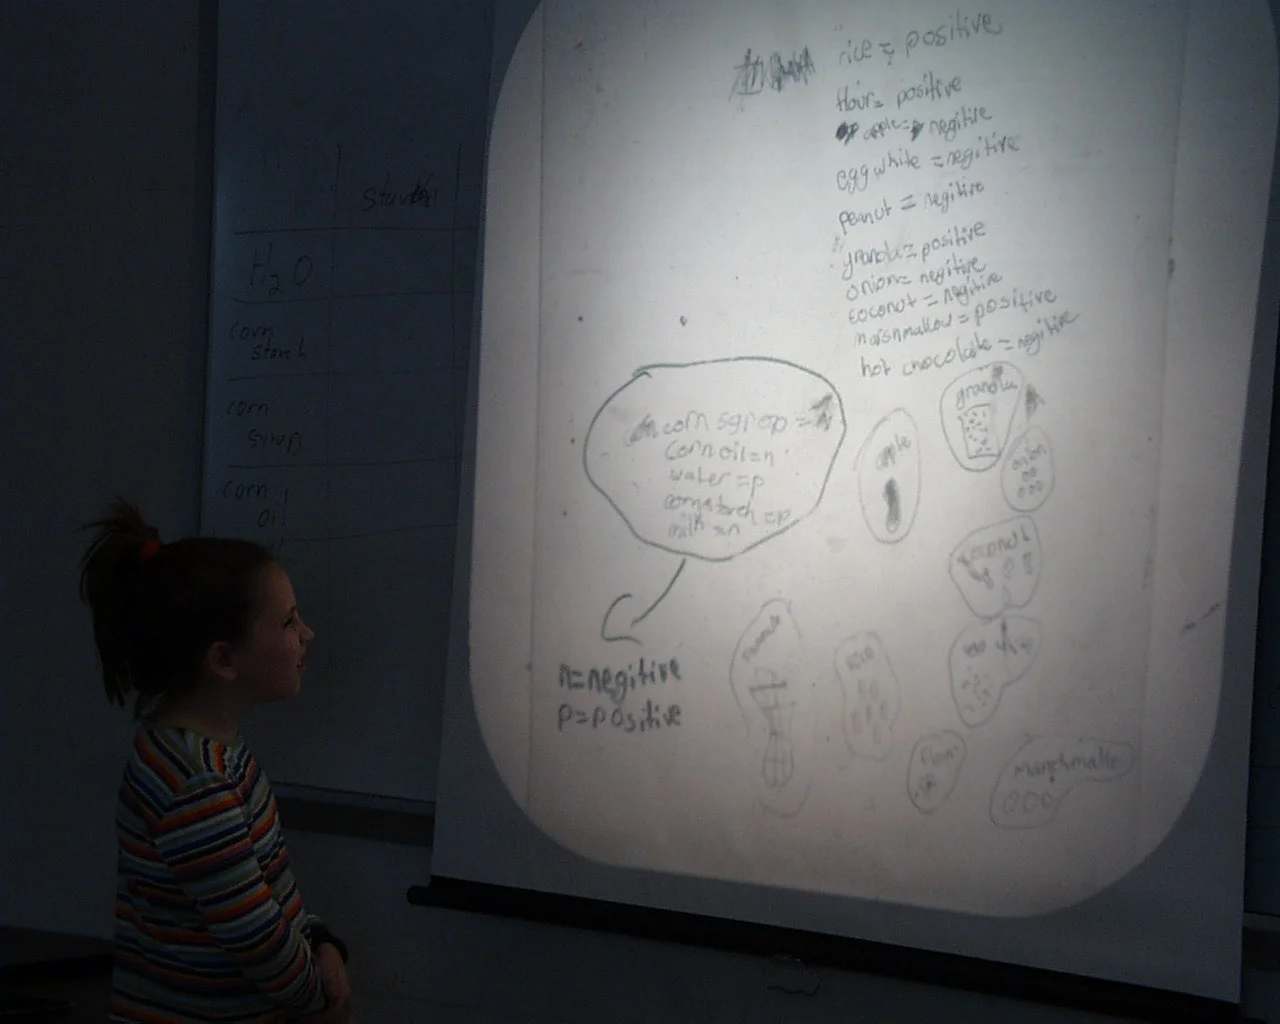 rice = positive
flour= positive
apple= negitive
egg white = negitive
peanut = negitive
granola= positive
onion= negitive
coconut = negitive
marshmallow = positive
hot chocolate = negitive
corn syrop =
corn oil=n
water =p
cornstarch =p
milk =n
n=negitive
p=positive
granola
apple
onion
coconut
peanut
rice
flour
marshmallo
starch
H2O
corn
starch
corn
syrup
corn
oil